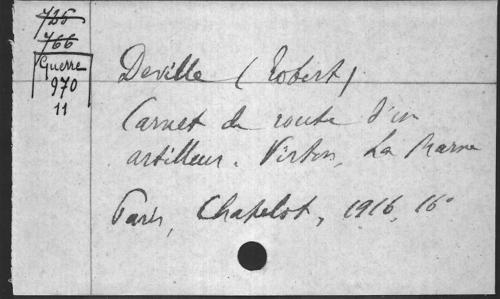 725
766
Guerre
970
11
Deville (Robert)
Carnet de route d'un
artilleur. Virton, La Marne
Paris, Chapelot, 1916, 16°